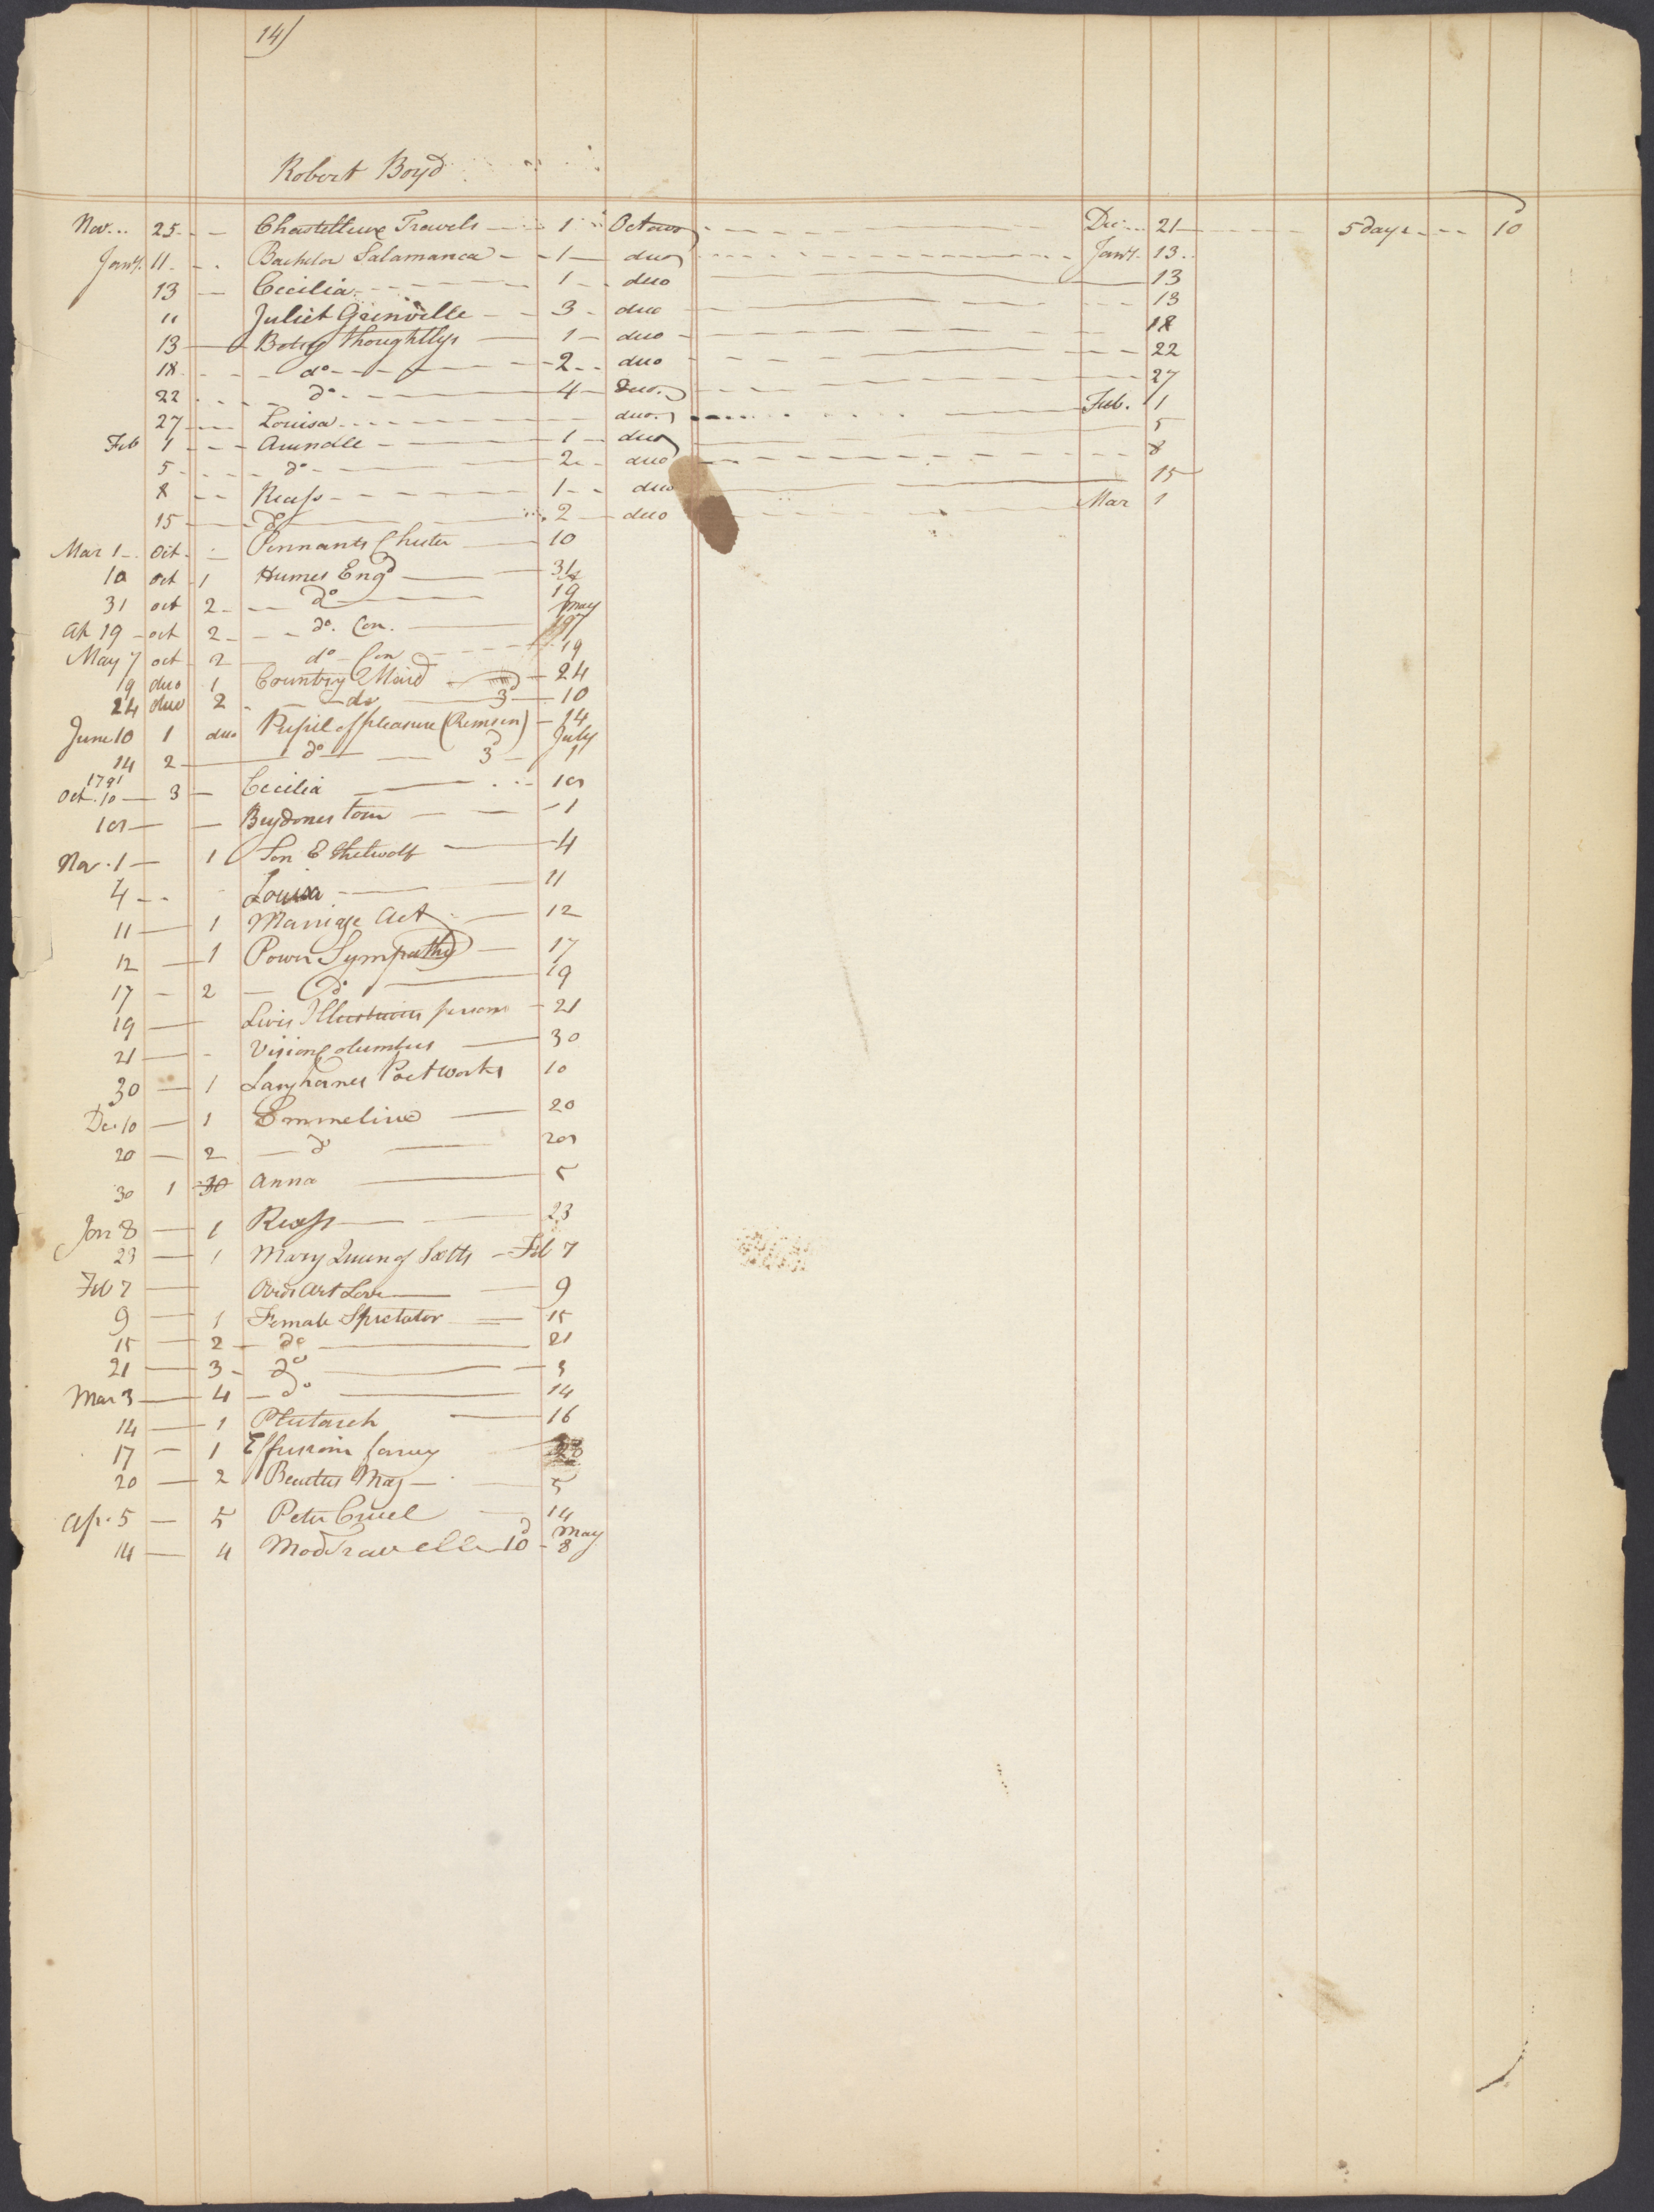 14)
Robert Boyd
Nov. 25 Chastelluxe Travels 1 Octavo Dec. 21 5 days 10
Jany. 11 Bachelor Salamanca 1 duo Jany. 13
13 Cecilia 1 duo 13
11 Juliet Grinville 3 duo 13
13 Betsy Thoughtlys 1 duo 18
18 do 2 duo 22
22 do 4 duo. 27
27 Louisa duo. Feb. 1
Feb 1 Arundle 1 duo 5
5 do 2 duo 8
8 Recess 1 duo 15
15 do 2 duo Mar 1
Mar 1 Oct. Pennants Chester 10
10 oct 1 Humes Engd 31
31 oct 2 do 19
Ap 19 oct 2 do. Con. May 7
May 7 oct 2 do Con 19
19 duo 1 Country Maid 24
24 duo 2 do 3d 10
June 10 1 duo Pupil of pleasure (Remsen) 14
14 2 do 3d July 1
1791
Oct. 10 3 Cecilia 10
10 Brydones tour 1
Nov. 1 1 Son Ethelwolf 4
4 Louisa 11
11 1 Marriage Act 12
12 1 Power Sympathy 17
17 2 do 19
19 Lives Illustrious persons 21
21 Vision Columbus 30
30 1 Langhornes Poet Works 10
De. 10 1 Emmeline 20
20 2 do 20
30 1 30 Anna 5
Jan 8 1 Recess 23
23 1 Mary Queen of Scotts Feb 7
Feb 7 Ovids Art Love 9
9 1 Female Spectator 15
15 2 do 21
21 3 do 3
Mar 3 4 do 14
14 1 Plutarch 16
17 1 Effusions fancy
20 2 Beauties Mag 5
Ap. 5 5 Peter Cruel 14
14 4 Mod Traveller 10d May 8